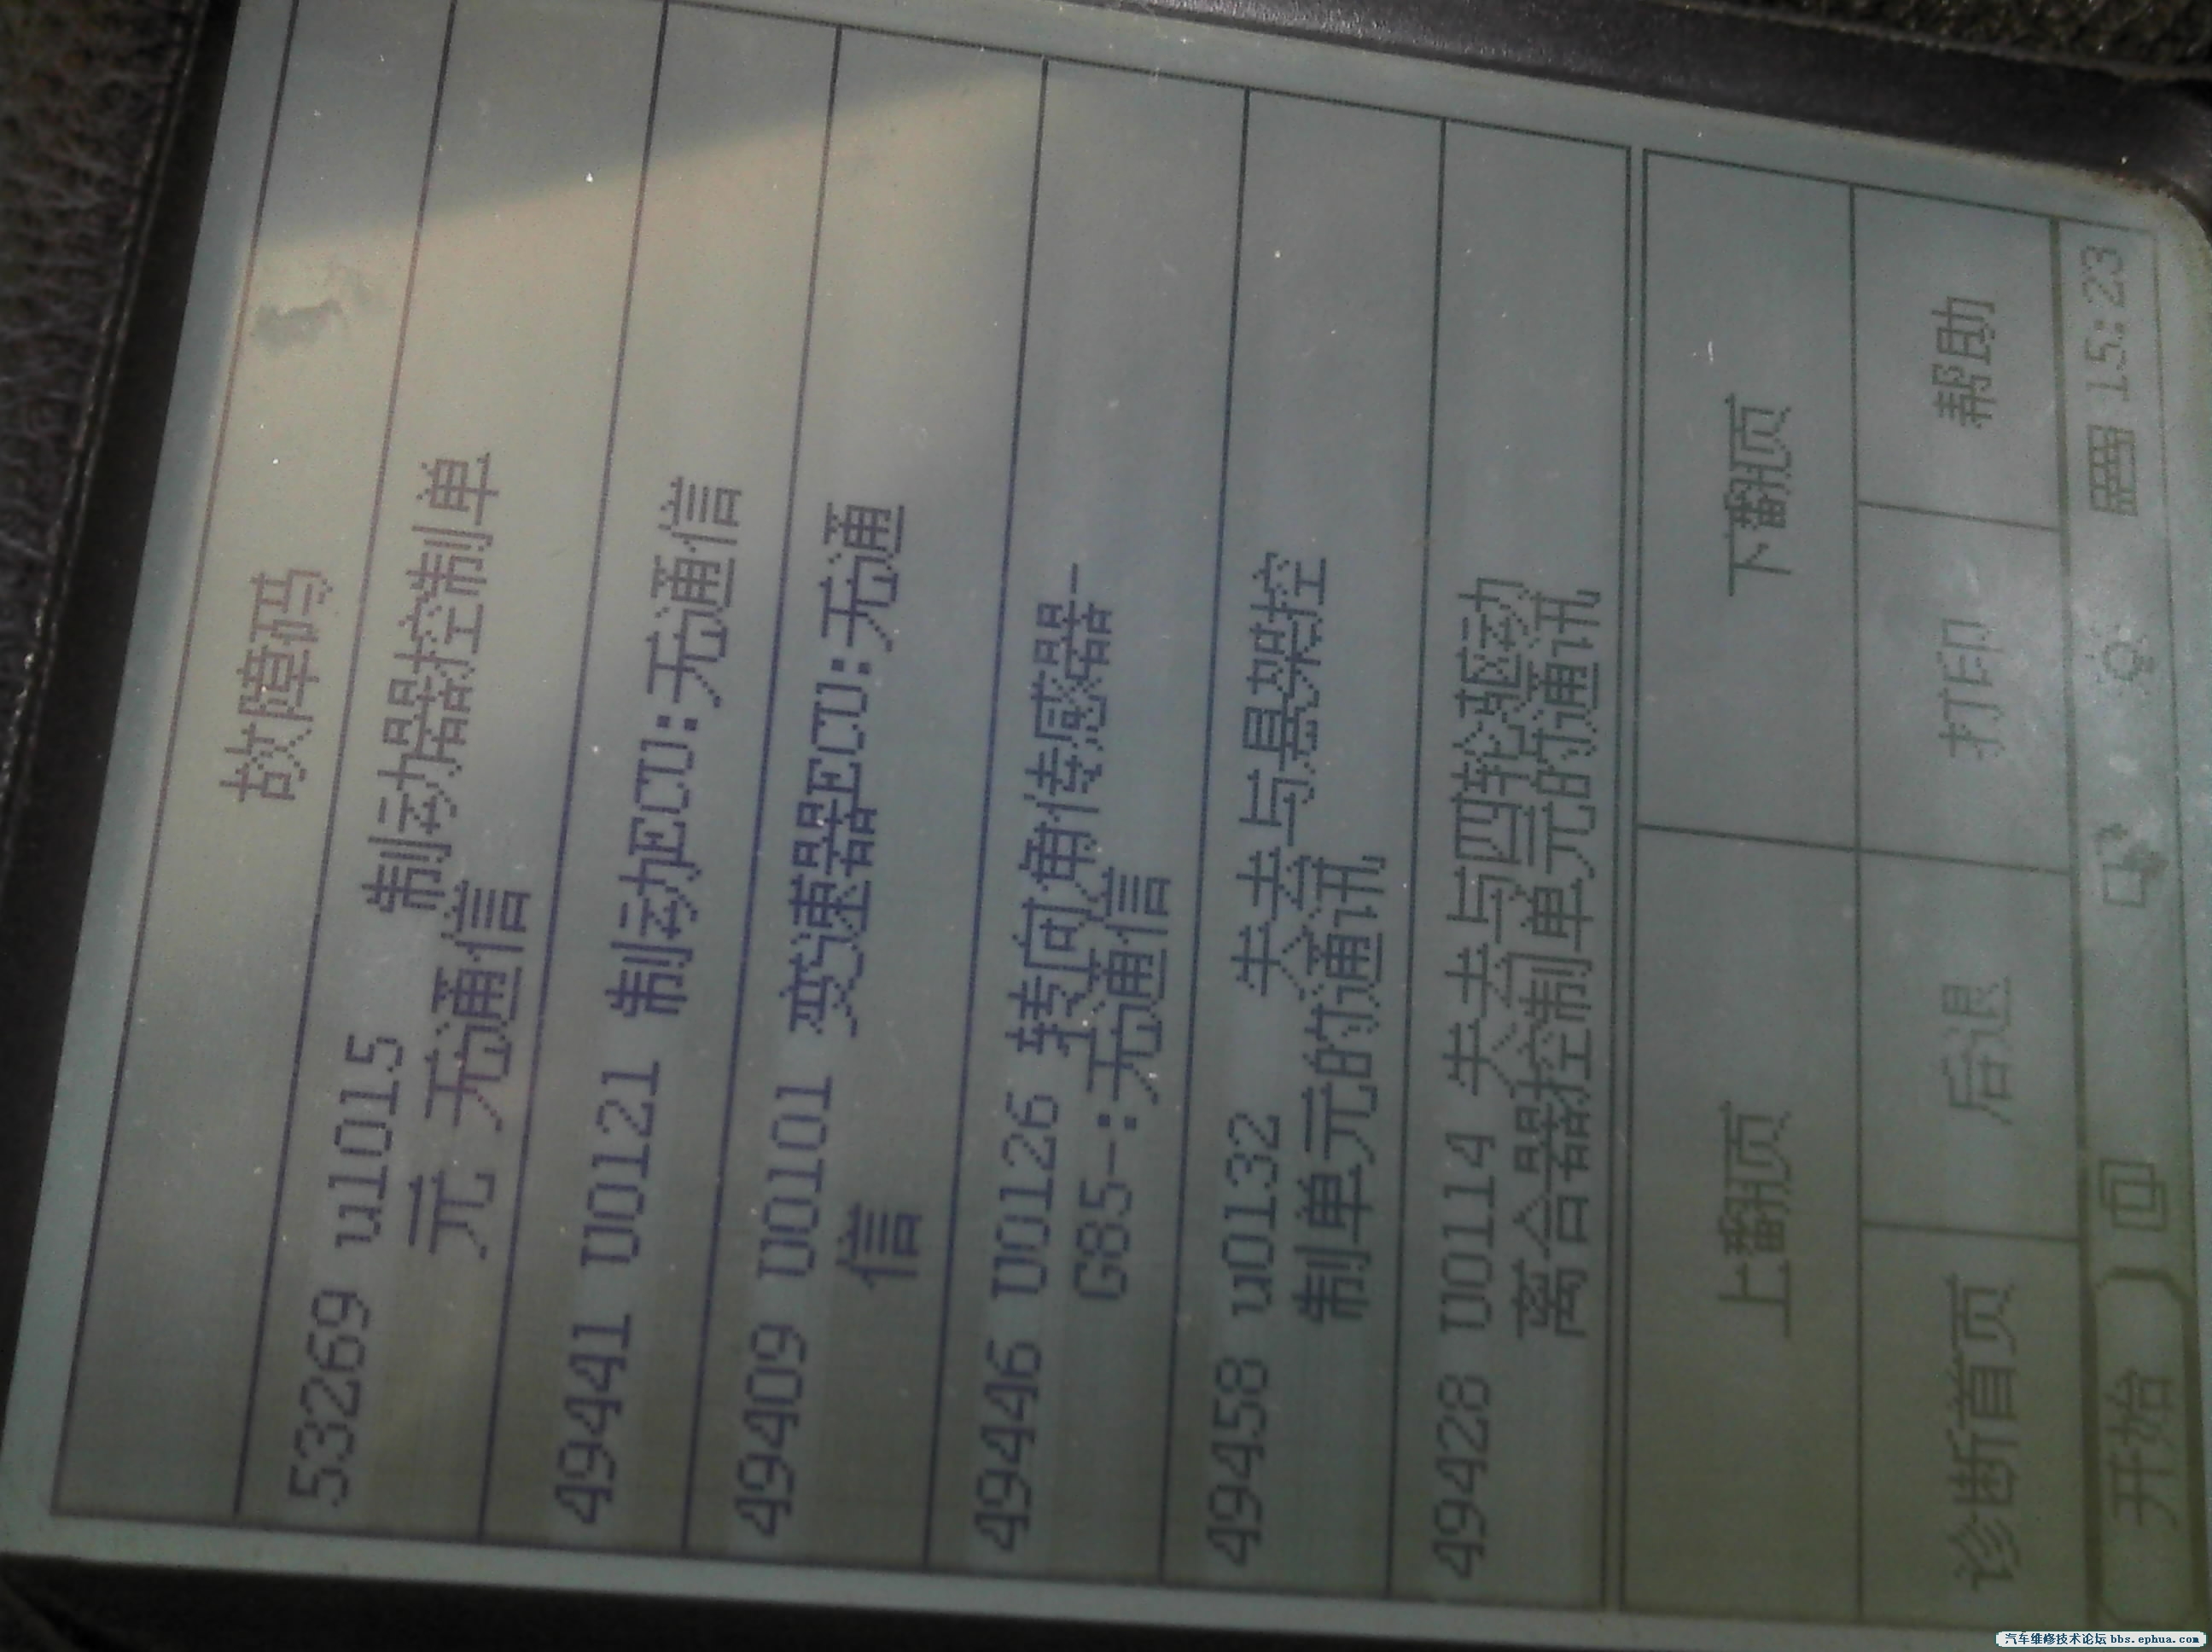 故障码
53269 u1015 制动器控制单
元 无通信
49441 U0121 制动ECU:无通信
49409 U0101 变速器ECU:无通
信
49446 U0126 转向角传感器-
G85-:无通信
49458 u0132 失去与悬架控
制单元的通讯
49428 U0114 失去与四轮驱动
离合器控制单元的通讯
上翻页 下翻页
诊断首页 后退 打印 帮助
开始 15:23
汽车维修技术论坛 bbs.ephua.com